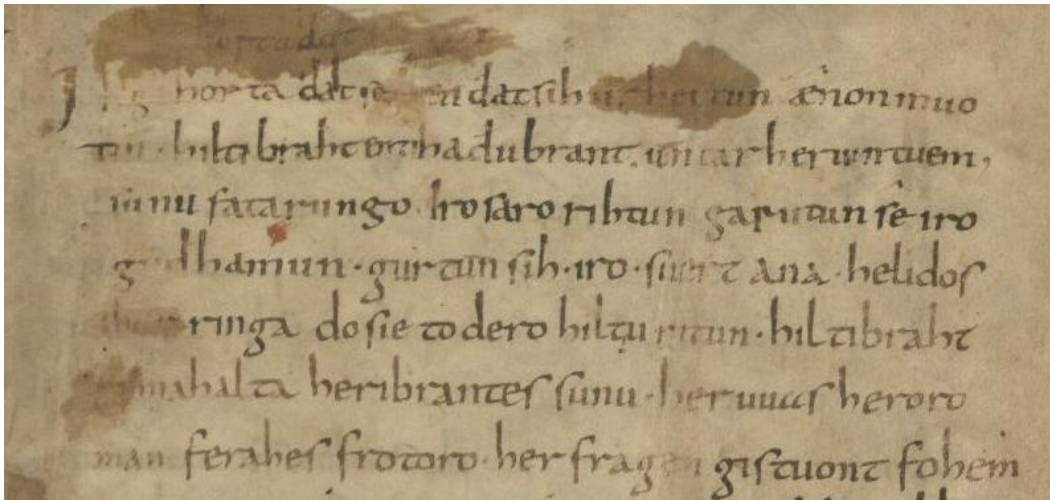 Ik gihorta dat seggen dat sih urhettun ænon muo
tin · hiltibraht enti hadubrant · untar heriun tuem,
sunu fatarungo · iro saro rihtun garutun se iro
gudhamun · gurtun sih · iro · suert ana · helidos
ubar ringa do sie to dero hiltu ritun · hiltibraht
gimahalta heribrantes sunu · her uuas heroro
man ferahes frotoro · her fragen gistuont fohem